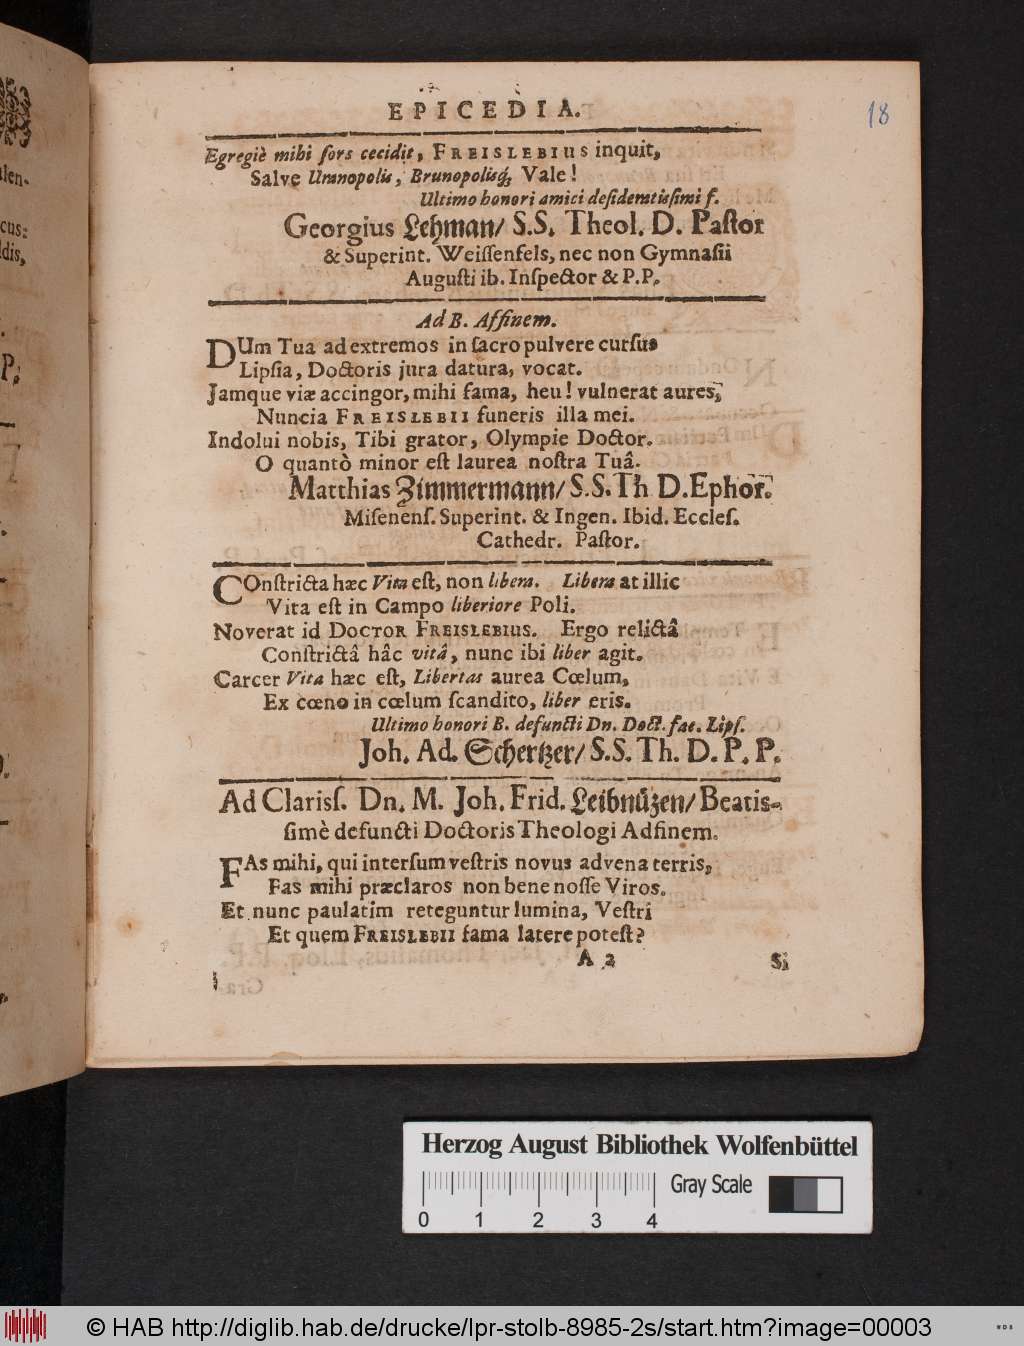 EPICEDIA.
18
Egregiè mihi sors cecidit, FREISLEBIUS inquit,
Salve Uranopolis, Brunopolisq́; Vale!
Ultimo honori amici desideratissimi f.
Georgius Lehman/ S.S. Theol. D. Pastor
& Superint. Weissenfels, nec non Gymnasii
Augusti ib. Inspector & P.P.
Ad B. Affinem.
DUm Tua ad extremos in sacro pulvere cursus
Lipsia, Doctoris jura datura, vocat.
Jamque viæ accingor, mihi fama, heu! vulnerat aures,
Nuncia FREISLEBII funeris illa mei.
Indolui nobis, Tibi grator, Olympie Doctor.
O quantò minor est laurea nostra Tuâ.
Matthias Zimmermann/ S.S. Th D. Ephor.
Misenens. Superint. & Ingen. Ibid. Eccles.
Cathedr. Pastor.
COnstricta hæc Vita est, non libera. Libera at illic
Vita est in Campo liberiore Poli.
Noverat id DOCTOR FREISLEBIUS. Ergo relictâ
Constrictâ hâc vitâ, nunc ibi liber agit.
Carcer Vita hæc est, Libertas aurea Cœlum,
Ex cœno in cœlum scandito, liber eris.
Ultimo honori B. defuncti Dn. Doct. fac. Lips.
Joh. Ad. Schertzer/ S.S. Th. D. P. P.
Ad Clariss. Dn. M. Joh. Frid. Leibnüzen/ Beatis-
simè defuncti Doctoris Theologi Adfinem.
FAs mihi, qui intersum vestris novus advena terris,
Fas mihi præclaros non bene nosse Viros.
Et nunc paulatim reteguntur lumina, Vestri
Et quem FREISLEBII fama latere potest?
A 2
Si
Herzog August Bibliothek Wolfenbüttel
Gray Scale
0 1 2 3 4
© HAB http://diglib.hab.de/drucke/lpr-stolb-8985-2s/start.htm?image=00003